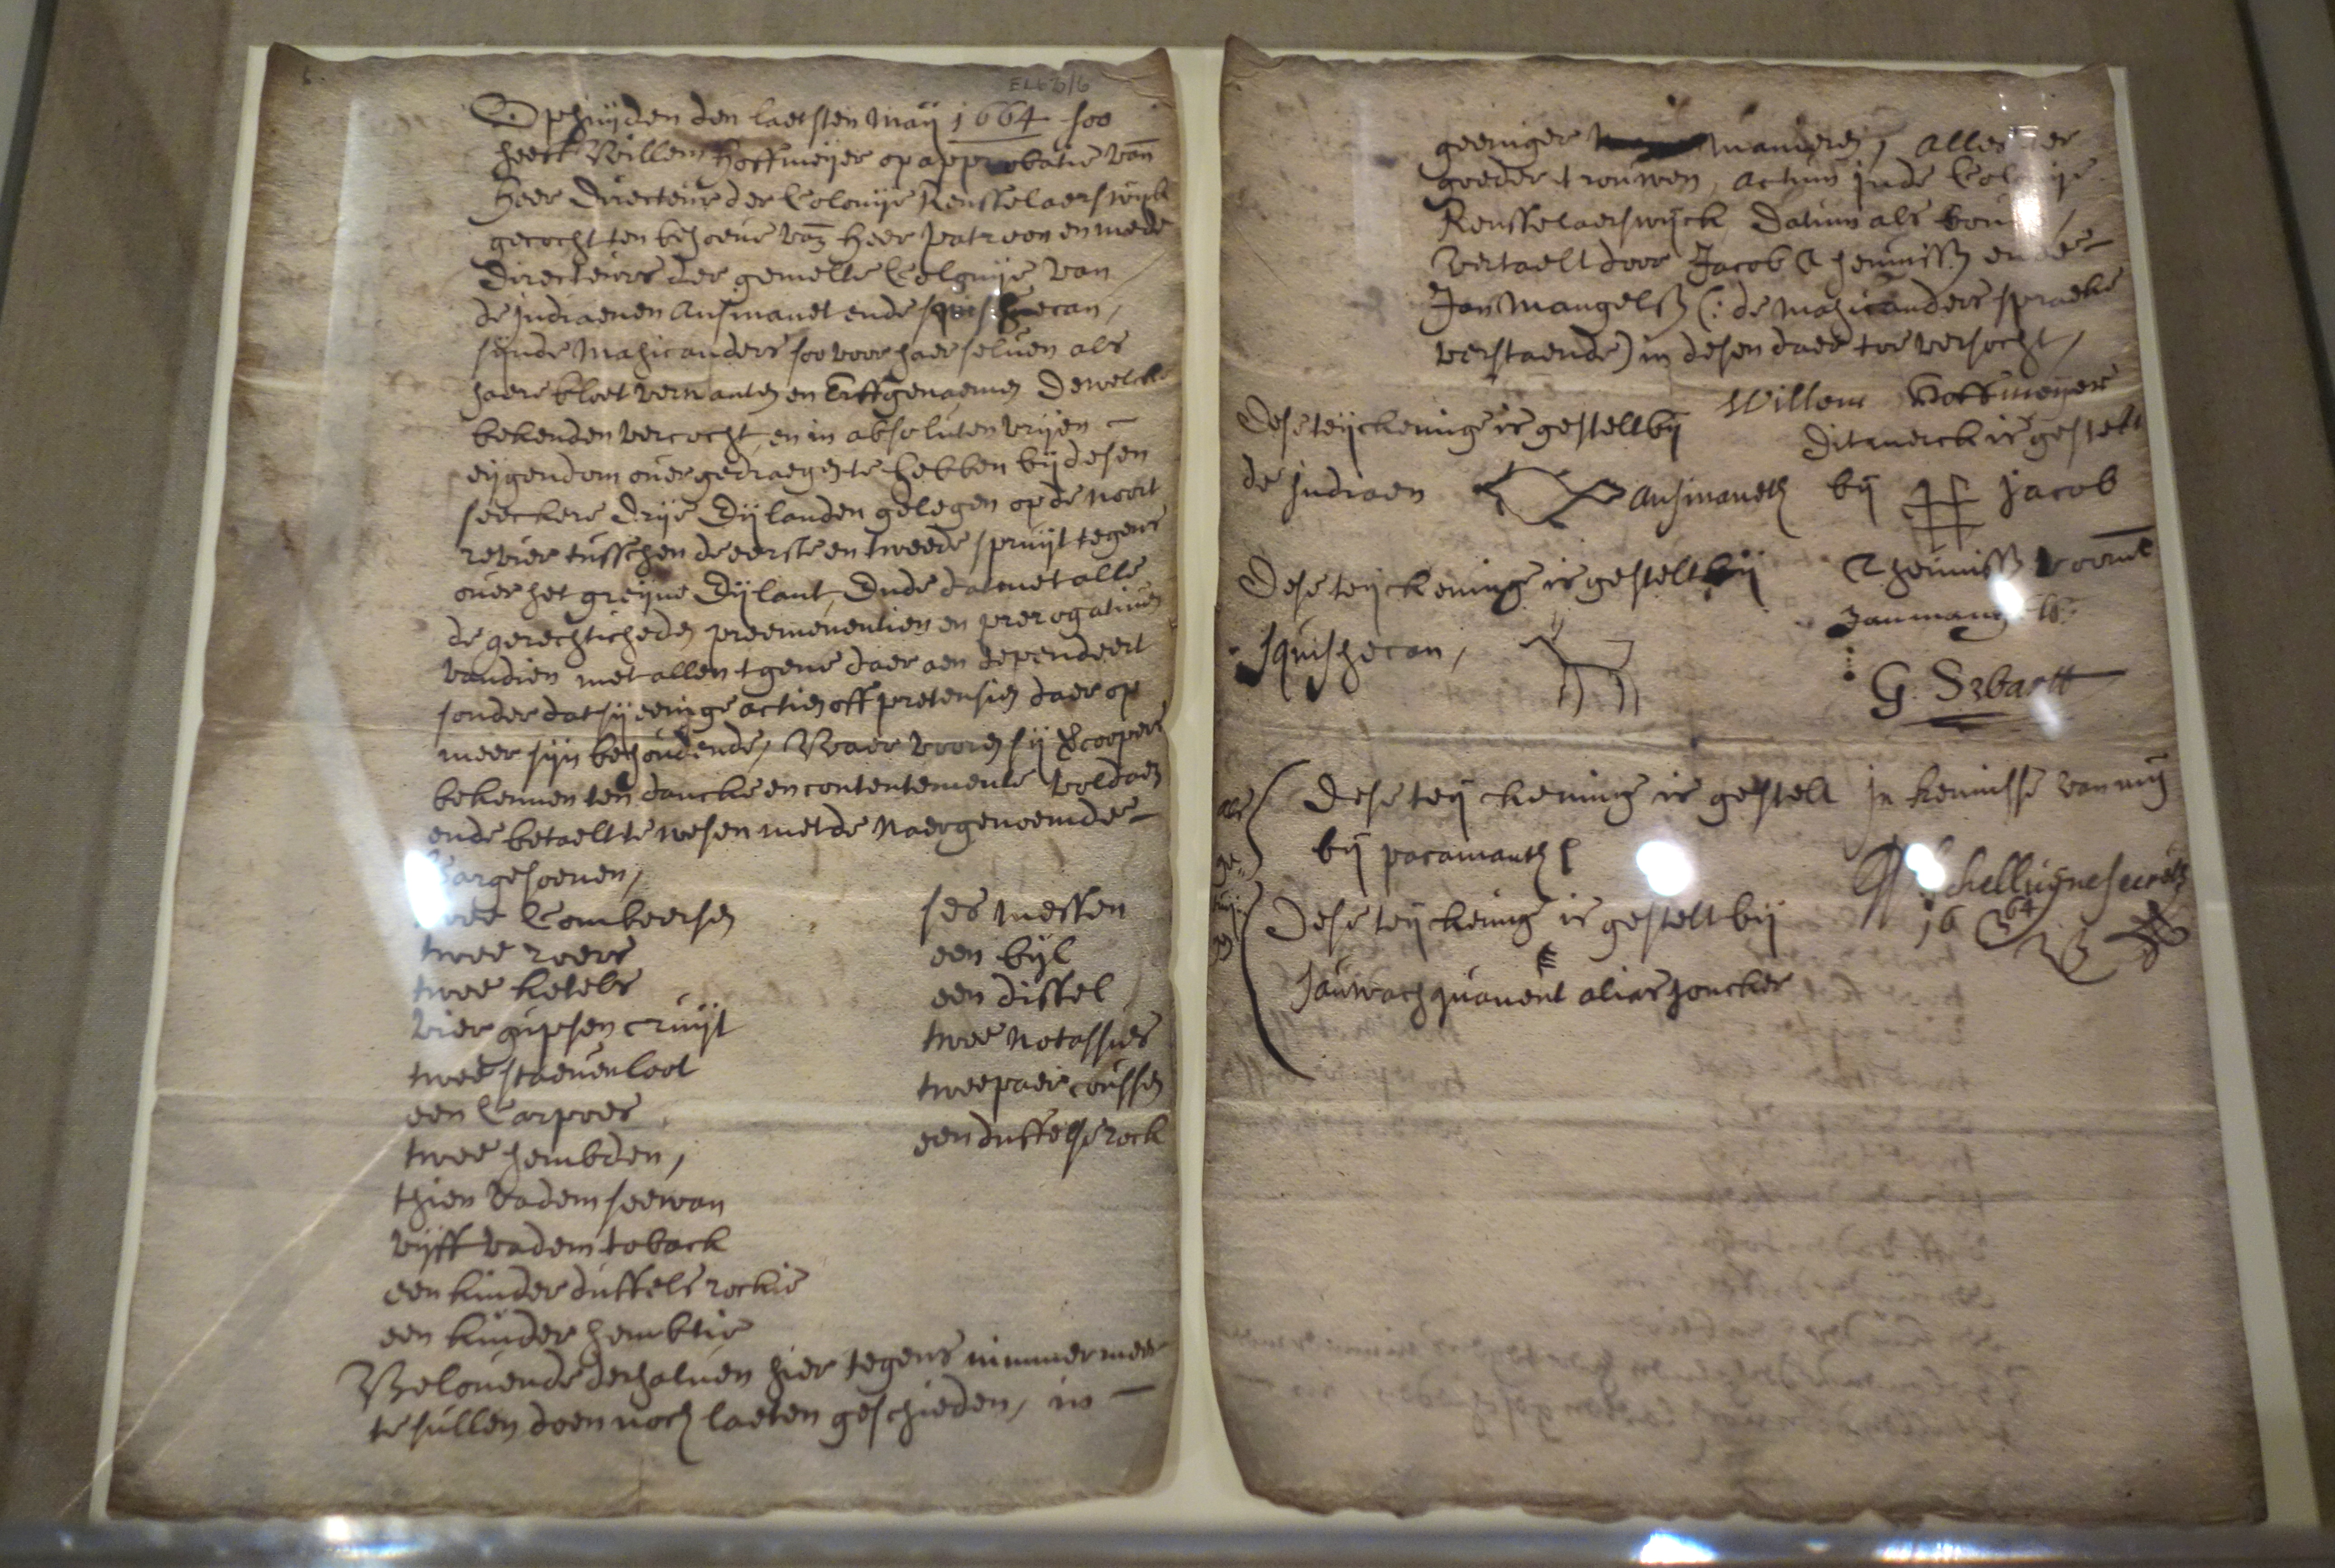 6.
EL679/6
Op huijden den laetsten Maij 1664 soo
heeft Willem Hoffmeijer op approbatie van
Heer Directeur der Colonije Rensselaerswijck
gecocht ten behoeve van Heer patroon en mede
Directeurs der gemelte Colonije van
de Indiaenen Ansinanet ende squishecan,
sijnde Mahicanders soo voor haer selven als
haere bloet verwanten en Erffgenaemen Dewelcke
bekenden vercocht, en in absoluten vrijen
eijgendom overgedraegen te hebben bij desen
seeckere Drije Eijlanden gelegen op de Noort
revier tusschen de eerste en tweede spruijt tegens
over het greijne Eijlant, Ende dat met alle
de gerechticheden preeminentien en prerogativen
van dien met allen tgene daer aen dependeert
sonder dat sij eenige actien off pretensien daer op
meer sijn behoudende, Waer vooren sij vercoopers
bekennen ten dancke en contentemente voldaen
ende betaelt te wesen met de Naergenoemde
Cargesoenen,
twee Combeersen
twee roers
twee ketels
vier gupsen cruijt
twee staeven loot
een Carpoes
twee hembden,
thien vadem seewan
vijff vadem toback
een kinder duffels rockie
een kinder hembtie
ses messen
een bijl
een dissel
twee Notassies
twee paer coussen
een duffelse rock
Belovende derhalven hier tegens nimmermeer
te sullen doen noch laeten geschieden, in
geeniger manieren, Alles ter
goeder trouwen, Actum inde Colonije
Rensselaerswijck Datum als boven,
vertaelt door Jacob Theunissen ende
Jan Mangelsz (: de Mahicanders spraeke
verstaende) in desen daer toe versocht,
Willem Hoffmeijer
Dese teijckeninge is gestelt bij
de Indiaen Ansinaneth
Dit merck is gestelt
bij Jacob
Theunissz voornt
Dese teijckeninge is gestelt bij
squishecan,
Jan mangelss
G. Swartt
als
ge-
tuij-
gen
Dese teijckening is gestelt
bij pacamanth
In kennisse van mij
Schelluijne secrets
1664
Dese teijckening is gestelt bij
Sauwachquanent alias Joncker